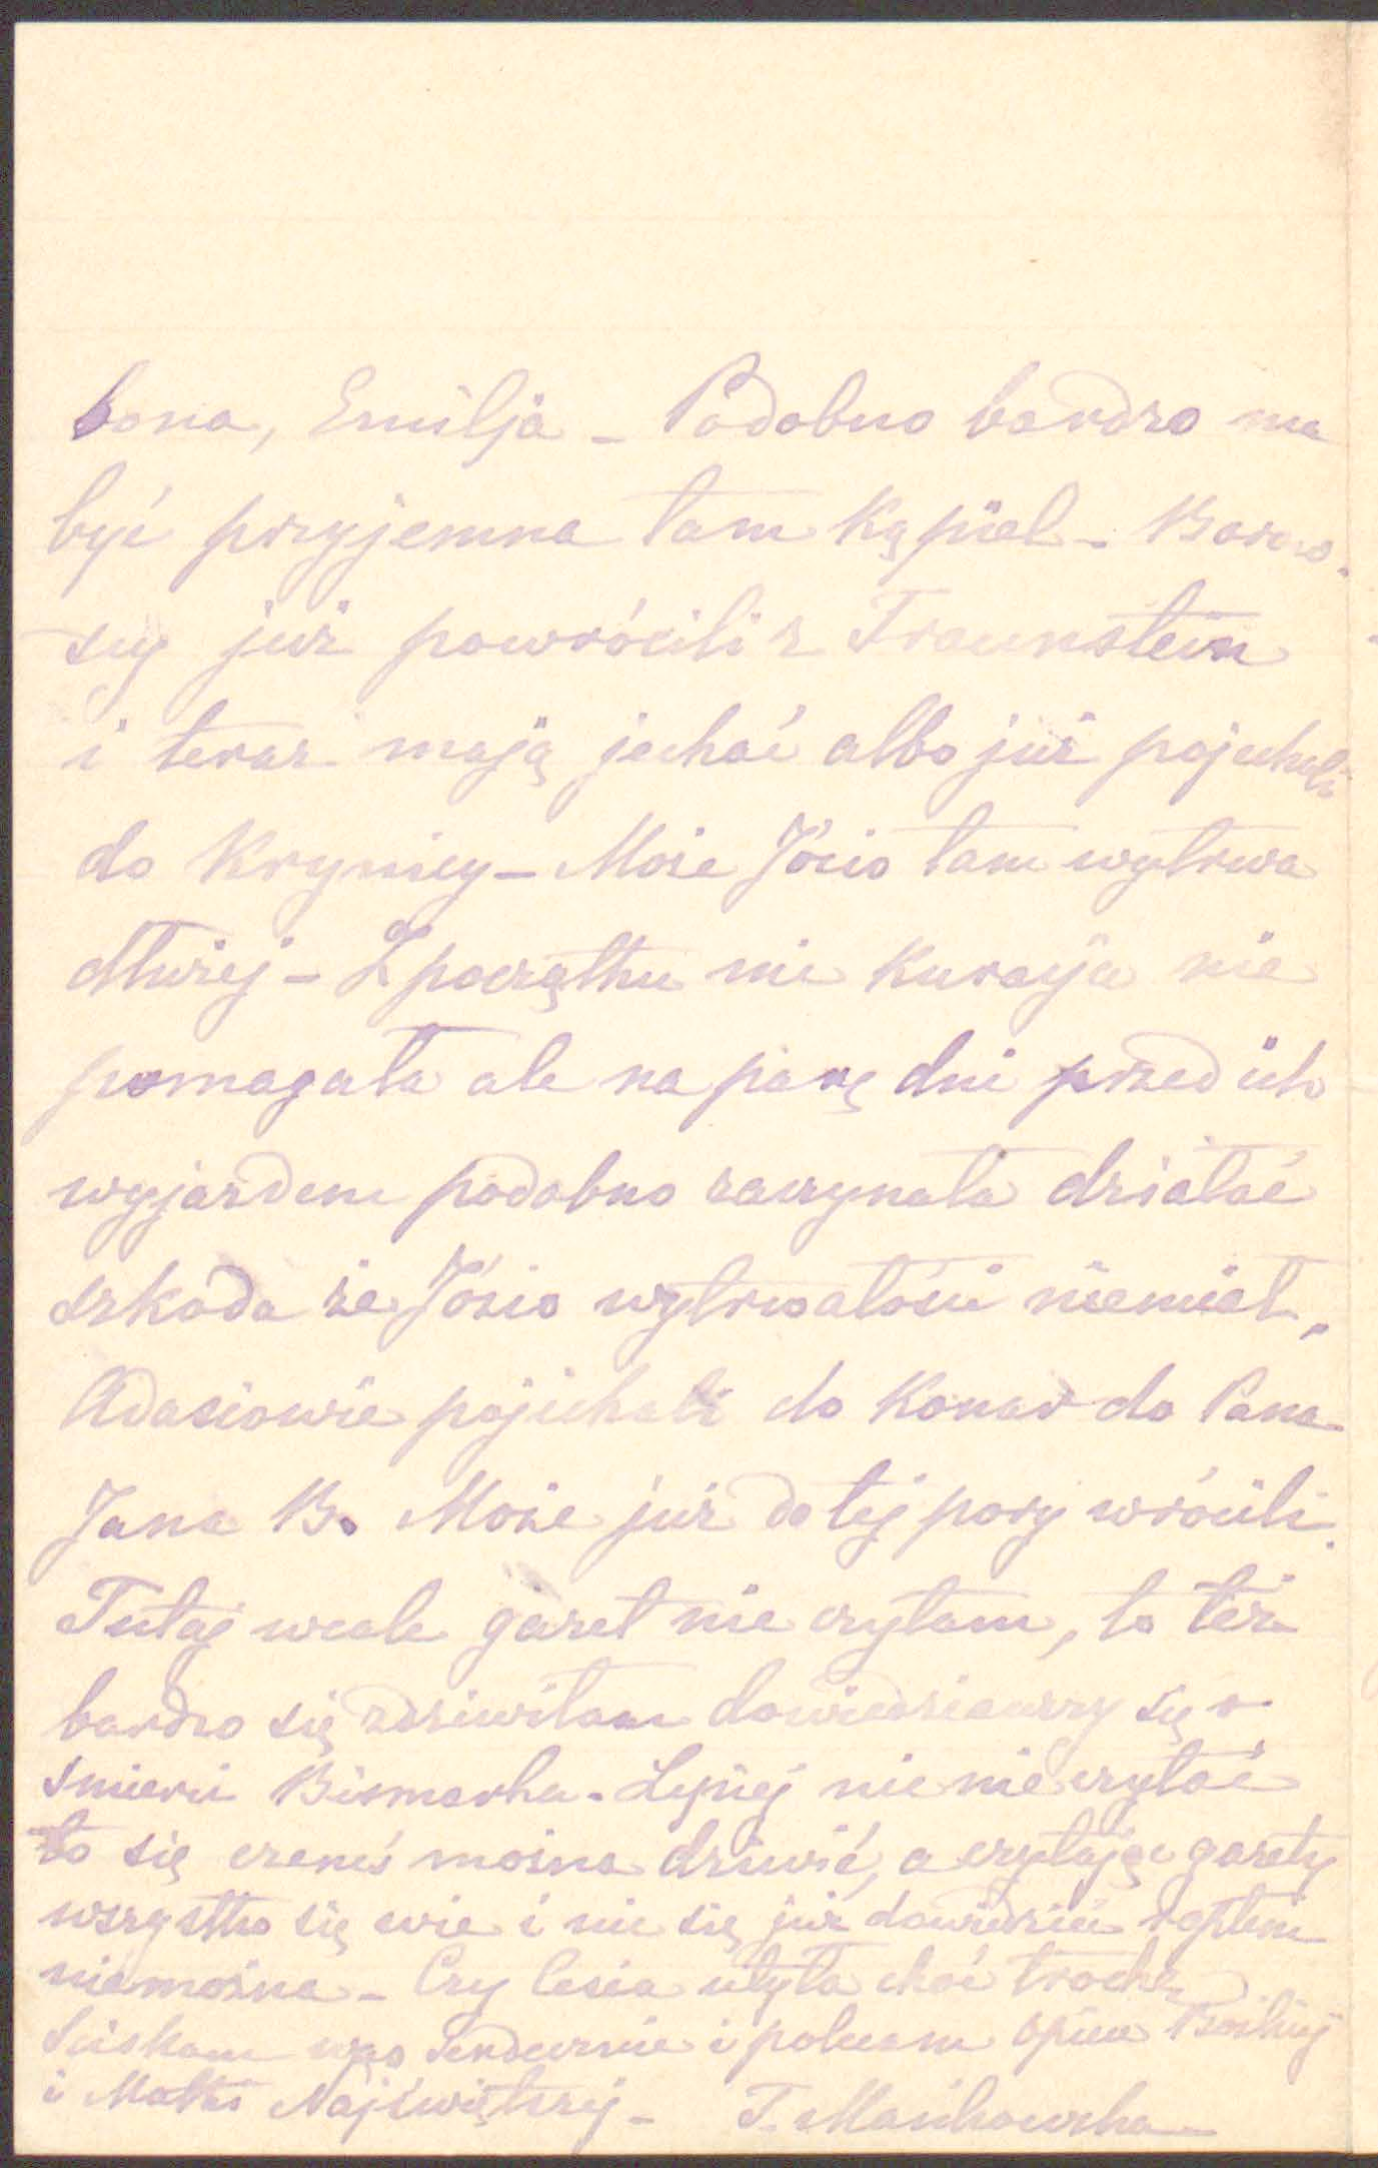 bona, Emilja – Podobno bardzo ma
być przyjemna tam Kąpiel – Barw
scy już powrócili z Traunstein
i teraz mają jechać albo już pojechali
do Krynicy – Może Józio tam wytrwa
dłużej – Z początku nic Kuracja nie
pomagała ale na parę dni przed ich
wyjazdem podobno zaczynała działać
szkoda że Józio wytrwałości niemiał.
Adasiowie pojechali do Konar do Pana
Jana B. Może już do tej pory wrócili.
Tutaj wcale gazet nie czytam, to też
bardzo się zdziwiłam dowiedziawszy się o
śmierci Bismarka. Lepiej nic nie czytać
to się czemś można dziwić, a czytając gazety
wszystko się wie i nic się już dowiedzieć
niemożna – Czy Cesia utyła choć trochę
Ściskam was serdecznie i polecam opiece Boskiej
i Matki Najświętszej – T.